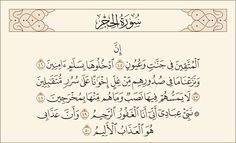 سُورَةُ الحِجْرِ
إِنَّ
ٱلْمُتَّقِينَ فِى جَنَّـٰتٍ وَعُيُونٍ ٤٥ ٱدْخُلُوهَا بِسَلَـٰمٍ ءَامِنِينَ ٤٦
وَنَزَعْنَا مَا فِى صُدُورِهِم مِّنْ غِلٍّ إِخْوَٰنًا عَلَىٰ سُرُرٍ مُّتَقَـٰبِلِينَ
٤٧ لَا يَمَسُّهُمْ فِيهَا نَصَبٌ وَمَا هُم مِّنْهَا بِمُخْرَجِينَ ٤٨
۞ نَبِّئْ عِبَادِىٓ أَنِّىٓ أَنَا ٱلْغَفُورُ ٱلرَّحِيمُ ٤٩ وَأَنَّ عَذَابِى
هُوَ ٱلْعَذَابُ ٱلْأَلِيمُ ٥٠